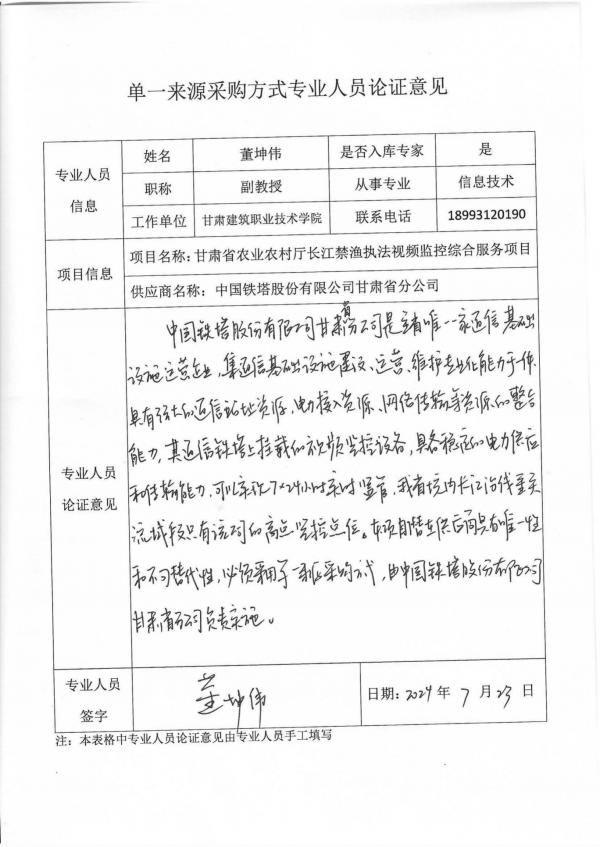 单一来源采购方式专业人员论证意见
专业人员信息 姓名 董坤伟 是否入库专家 是
职称 副教授 从事专业 信息技术
工作单位 甘肃建筑职业技术学院 联系电话 18993120190
项目信息 项目名称：甘肃省农业农村厅长江禁渔执法视频监控综合服务项目
供应商名称：中国铁塔股份有限公司甘肃省分公司
专业人员论证意见
中国铁塔股份有限公司甘肃省分公司是全省唯一一家通信基础
设施运营企业，集通信基础设施建设、运营、维护专业化能力于一体，
具有强大的通信站址资源，电力接入资源、网络传输等资源的整合
能力，其通信铁塔上挂载的视频监控设备，具备稳定的电力供应
和传输能力，可以实现7×24小时实时监管，我省境内长江沿线重要
流域段只有该公司的高点监控点位。本项目供应商具有唯一性
和不可替代性，必须采用单一来源采购方式，由中国铁塔股份有限公司
甘肃省分公司负责实施。
专业人员签字 董坤伟 日期：2024年7月23日
注：本表格中专业人员论证意见由专业人员手工填写